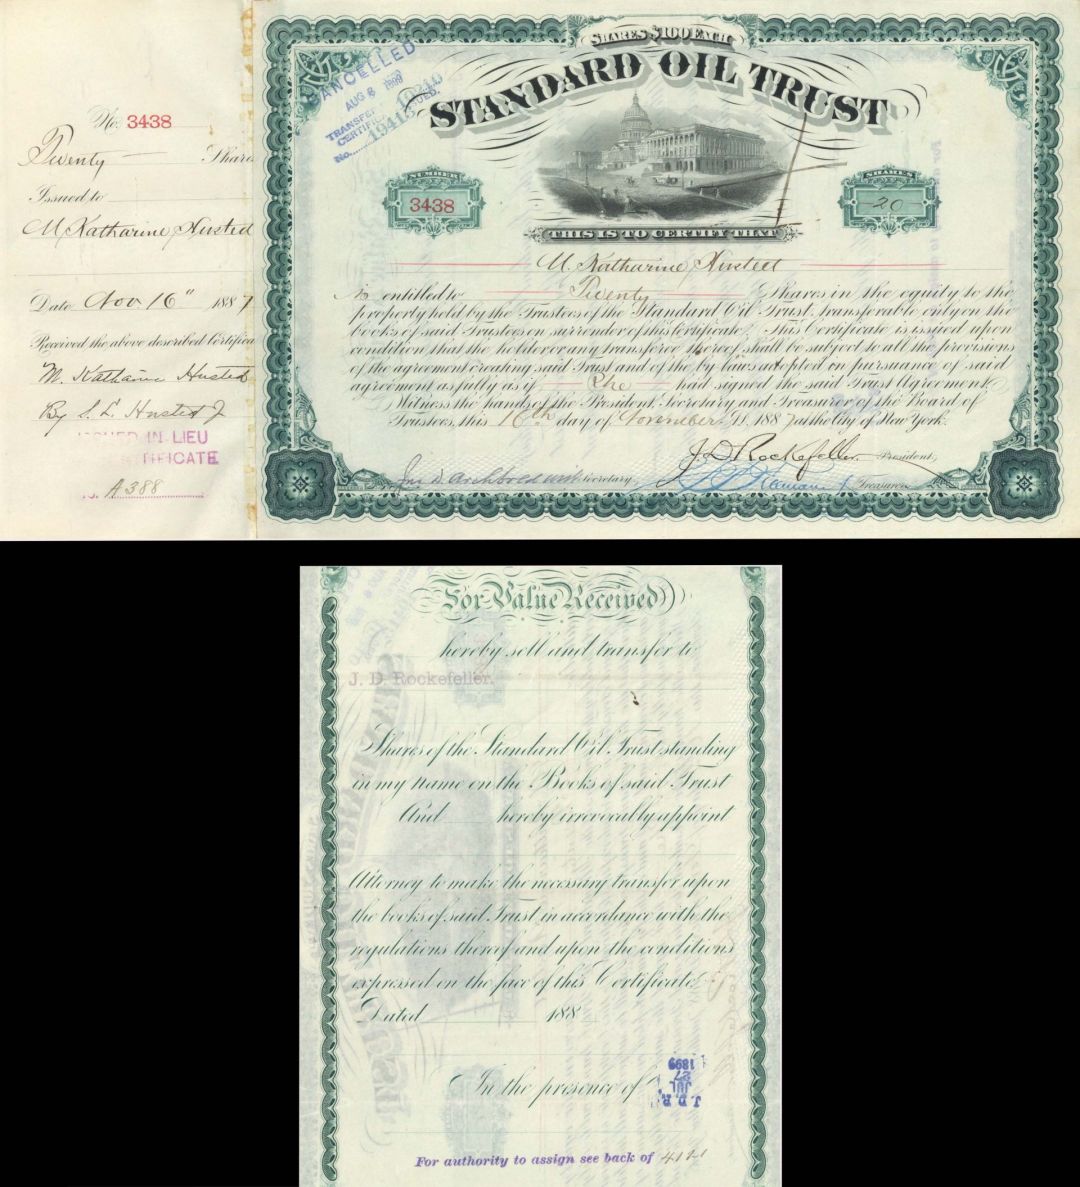 No. 3438
Twenty Share
Issued to
M. Katharine Husted
Date Nov 16" 1887
Received the above described Certifica
M. Katharine Husted
By S. L. Husted Jr
ISSUED IN LIEU
TIFICATE
A388
CANCELLED
AUG 8 1899
TRANSFER
CERTIFIC
No.
SHARES $100 EACH
STANDARD OIL TRUST
NUMBER
3438
SHARES
20
THIS IS TO CERTIFY THAT
M. Katharine Husted
is entitled to Twenty Shares in the equity to the
property held by the Trustees of the Standard Oil Trust, transferable only on the
books of said Trustees on surrender of this Certificate. This Certificate is issued upon
condition that the holder or any transferee thereof shall be subject to all the provisions
of the agreement creating said Trust and of the by-laws adopted in pursuance of said
agreement as fully as if She had signed the said Trust Agreement.
Witness the hands of the President, Secretary and Treasurer of the Board of
Trustees, this 16th day of November A.D. 1887 at the City of New York.
J. D. Rockefeller President,
Jno. D. Archbold Secretary,
Treasurer
For Value Received
hereby sell and transfer to
J. D. Rockefeller.
Shares of the Standard Oil Trust standing
in my name on the Books of said Trust
And hereby irrevocably appoint
Attorney to make the necessary transfer upon
the books of said Trust in accordance with the
regulations thereof and upon the conditions
expressed on the face of this Certificate.
Dated 188
In the presence of
J. D. R.
JUL
27
1899
For authority to assign see back of